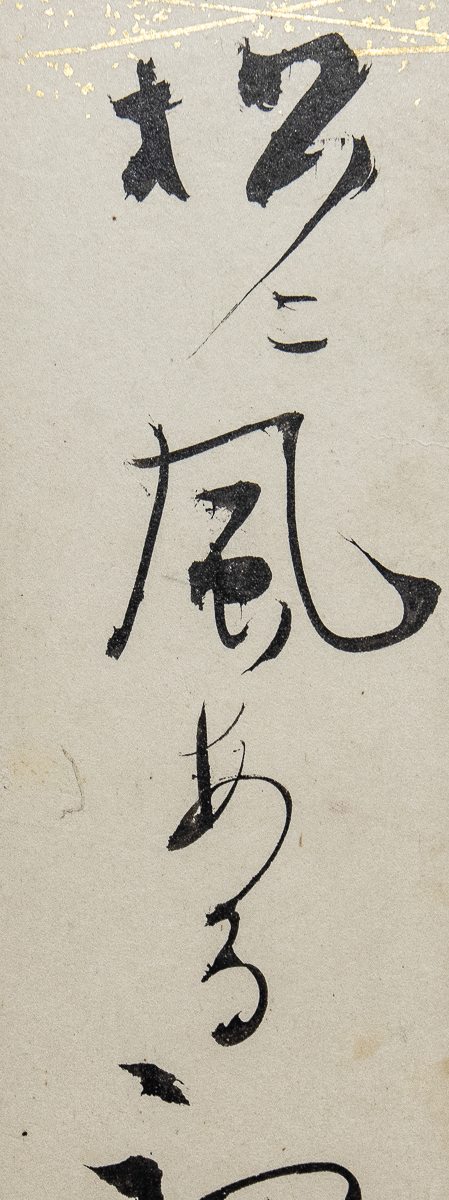 松に風ある